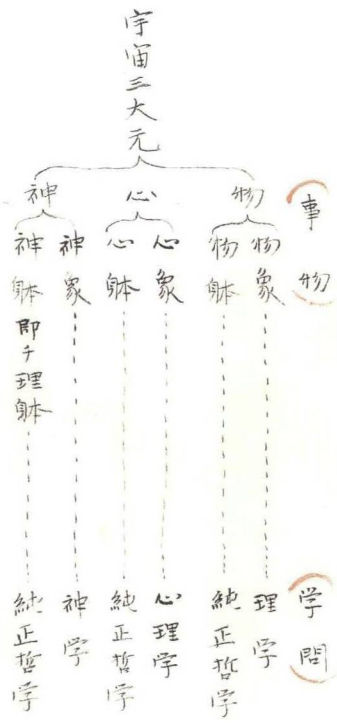 宇宙三大元
事物
物
心
神
物象
物躰
心象
心躰
神象
神躰即チ理躰
学問
理学
純正哲学
心理学
純正哲学
神学
純正哲学